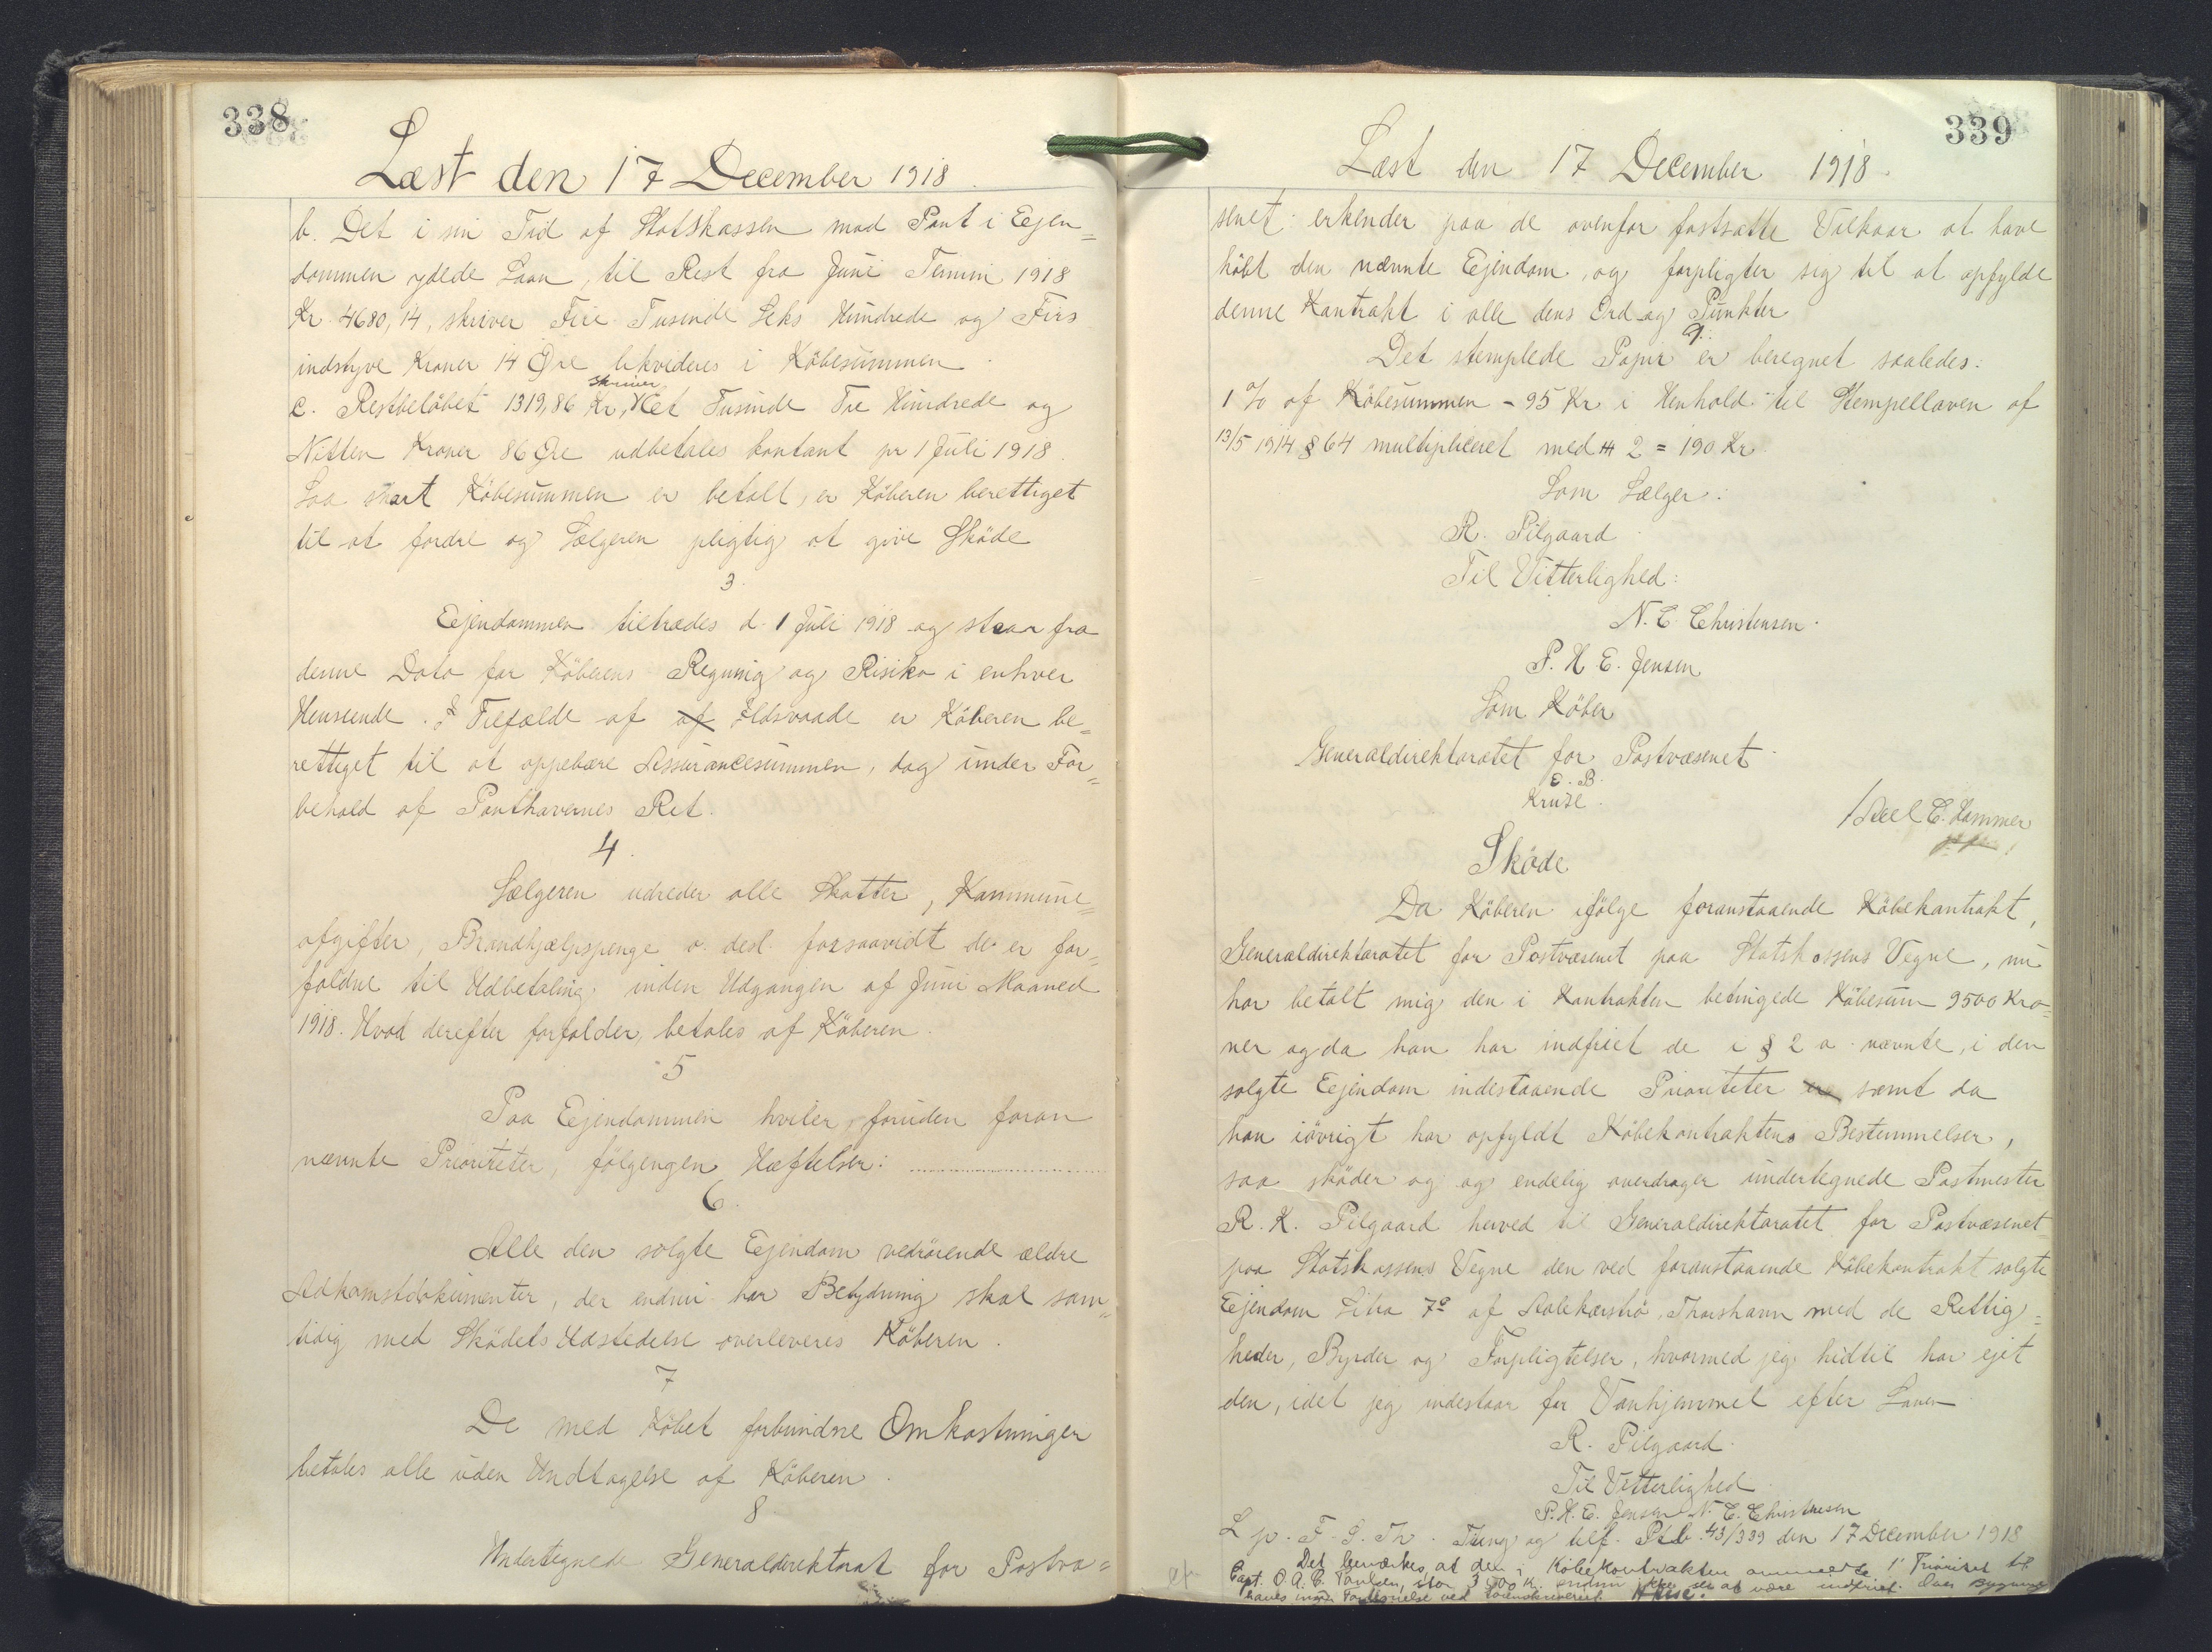 338
Læst den 17 December 1918.
b. Det i sin Tid af Statskassen mod Pant i Ejen=
dommen ydede Laan, til Rest fra Juni Termin 1918
Kr. 4680,14, skriver Fire Tusinde Seks Hundrede og Firs
indstyve Kroner 14 Øre likvideres i Köbesummen.
skriver
c. Restbelöbet 1319,86 Kr, Et Tusinde Tre Hundrede og
Nitten Kroner 86 Øre udbetales kontant pr 1 Juli 1918.
Saa snart Köbesummen er betalt, er Köberen berettiget
til at fordre og Sælgeren pligtig at give Sköde
3.
Ejendommen tiltrædes d. 1 Juli 1918 og staar fra
denne Dato for Köberens Regning og Risiko i enhver
Henseende. I Tilfælde af af Ildsvaade er Köberen be=
rettiget til at oppebære Assurancesummen, dog under For=
behold af Panthavernes Ret.
4.
Sælgeren udreder alle Skatter, Kommune=
afgifter, Brandhjælpspenge o. desl. forsaavidt de er for=
faldne til Udbetaling inden Udgangen af Juni Maaned
1918. Hvad derefter forfalder, betales af Köberen.
5
Paa Ejendommen hviler, foruden foran
nævnte Prioriteter, fölgengen Hæftelser: ............
6.
Alle den solgte Ejendom vedrörende ældre
Adkomstdokumenter, der endnu har Betydning skal sam=
tidig med Sködets Udstedelse overleveres Köberen.
7
De med Köbet forbundne Omkostninger
betales alle uden Undtagelse af Köberen.
8.
Undertegnede Generaldirektorat for Postvæ=
339
Læst den 17 December 1918.
senet erkender paa de ovenfor fastsatte Vilkaar at have
köbt den nævnte Ejendom, og forpligter sig til at opfylde
denne Kontrakt i alle dens Ord og Punkter
9.
Det stemplede Papir er beregnet saaledes:
1 % af Köbesummen = 95 Kr i Henhold til Stempelloven af
13/5 1914 § 64 multipliceret med 2 = 190 Kr.
Som Sælger:
R. Pilgaard.
Til Vitterlighed:
N. C. Christensen.
P. H. E. Jensen
Som Köber
Generaldirektoratet for Postvæsenet.
E. B.
Kruse.
/Axel E. Hammer
Sköde
Da Köberen ifölge foranstaaende Köbekontrakt,
Generaldirektoratet for Postvæsenet paa Statskassens Vegne, nu
har betalt mig den i Kontrakten betingede Köbesum 9500 Kro=
ner og da han har indfriet de i § 2 a nævnte, i den
solgte Ejendom indestaaende Prioriteter samt da
han iövrigt har opfyldt Köbekontraktens Bestemmelser,
saa sköder og og endelig overdrager undertegnede Postmester
R. K. Pilgaard herved til Generaldirektoratet for Postvæsenet
paa Statskassens Vegne den ved foranstaaende Köbekontrakt solgte
Ejendom Litra 7º af Thorshavn med de Rettig=
heder, Byrder og Forpligtelser, hvormed jeg hidtil har ejet
den, idet jeg indestaar for Vanhjemmel efter Loven
R. Pilgaard.
Til Vitterlighed.
P. H. E. Jensen N. C. Christensen
L p. F. S. Th. Ting og tilf. Ptb. 43/339 den 17 December 1918
Det bemærkes, at den i Köbekontrakten ommeldte 1' Prioritet til
Capt. O. A. E. Poulsen, stor 3500 Kr. endnu ikke ses at være indfriet.